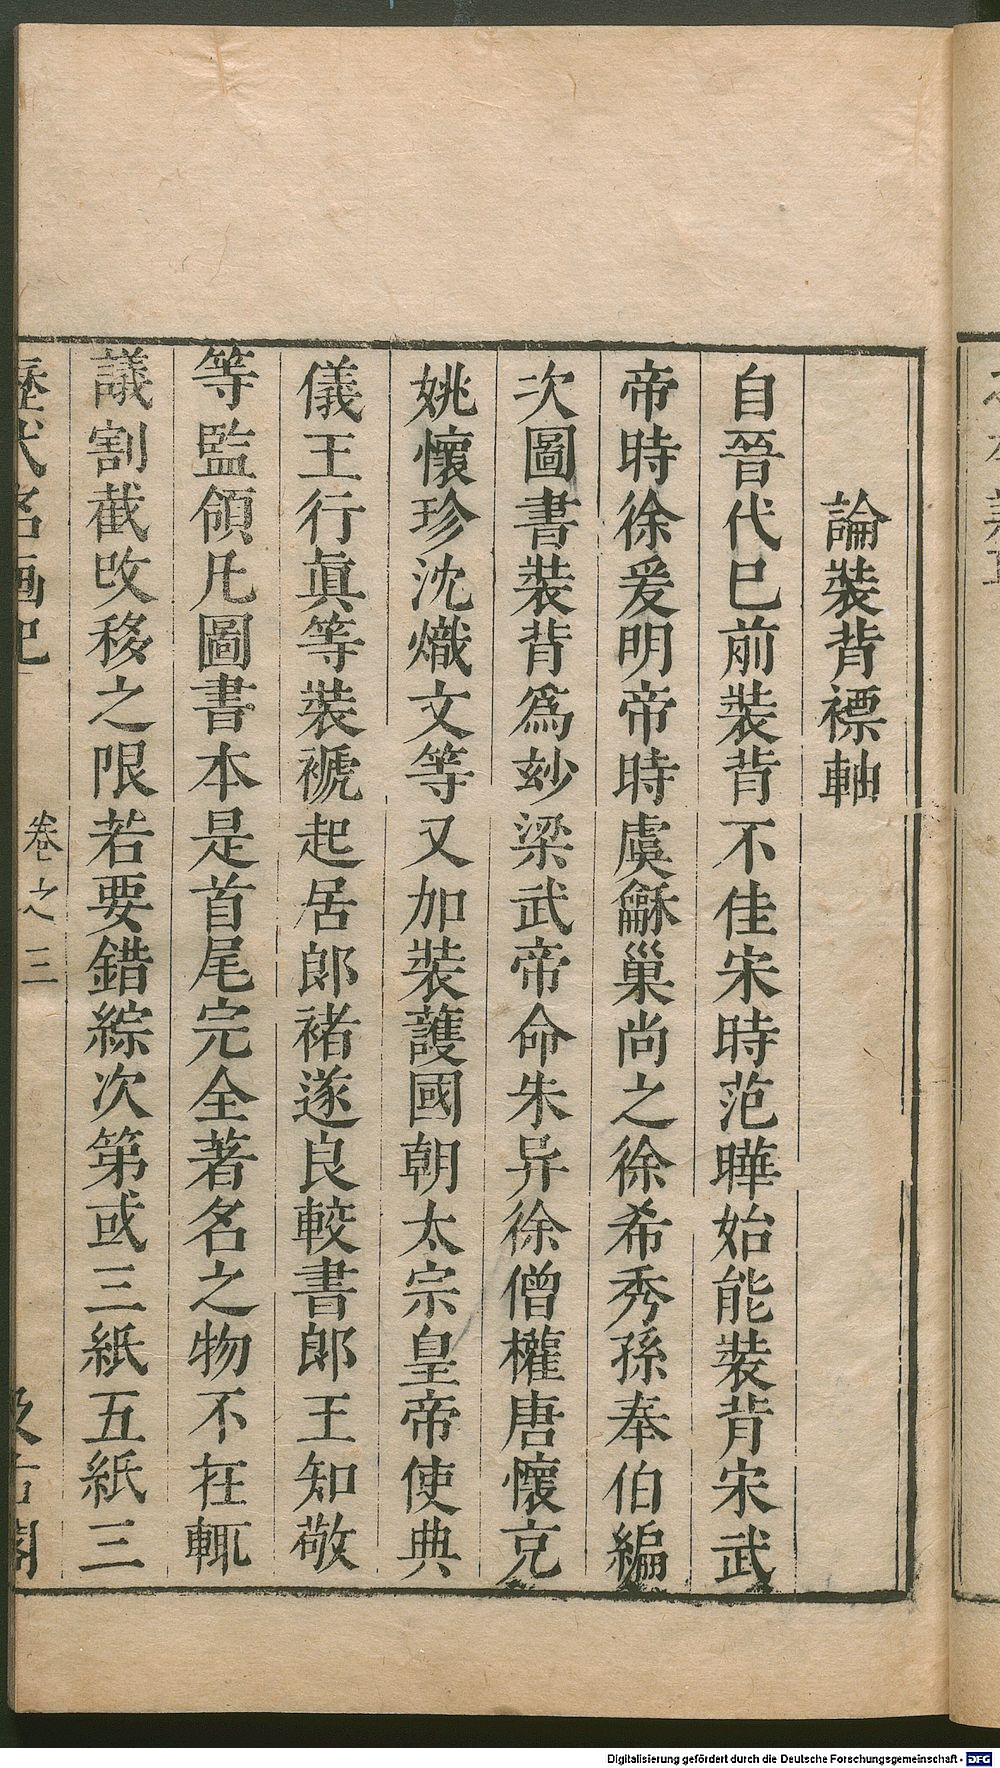 論裝背褾軸
自晉代已前裝背不佳宋時范曄始能裝背宋武
帝時徐爰明帝時虞龢巢尚之徐希秀孫奉伯編
次圖書裝背爲玅梁武帝命朱异徐僧權唐懷克
姚懷珍沈熾文等又加裝護國朝太宗皇帝使典
儀王行眞等裝褫起居郞褚遂良較書郞王知敬
等監領凡圖書本是首尾完全著名之物不在輒
議割截改移之限若要錯綜次第或三紙五紙三
歷代名画記 卷之三 汲古閣
Digitalisierung gefördert durch die Deutsche Forschungsgemeinschaft - DFG